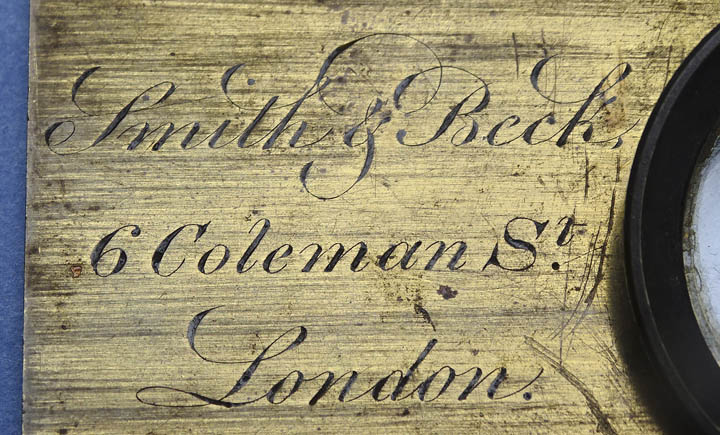 Smith & Beck,
6 Coleman St.
London.